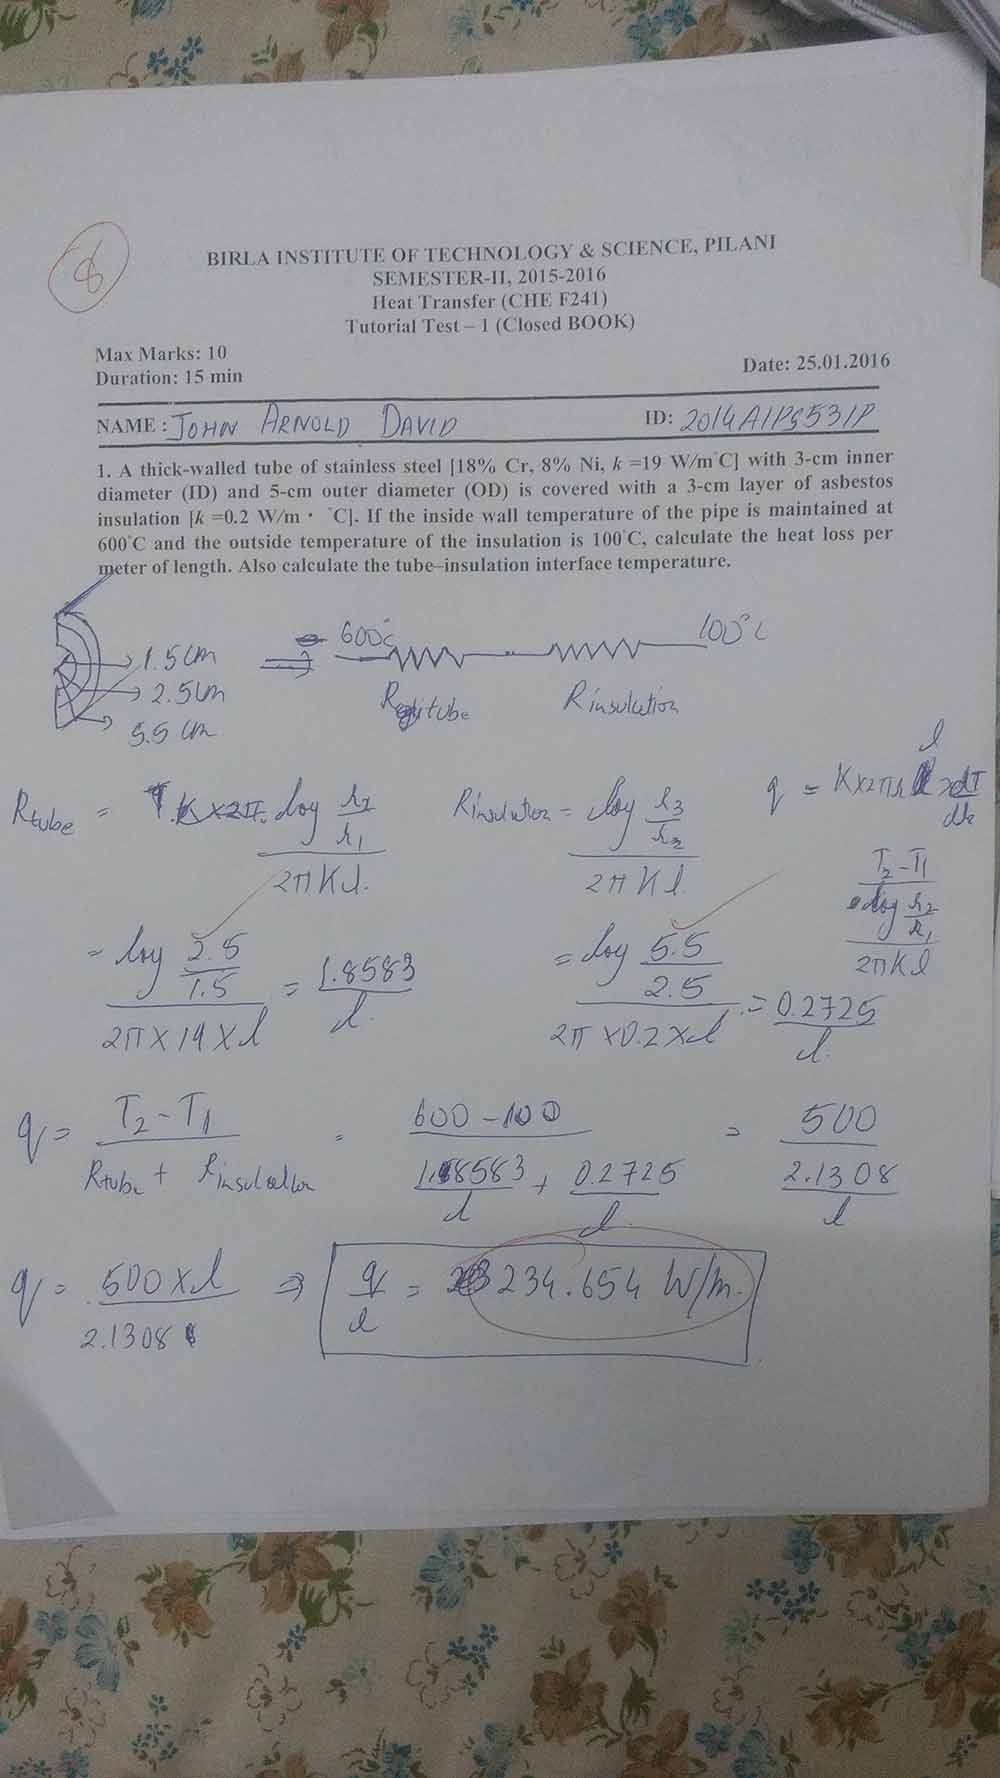 8
BIRLA INSTITUTE OF TECHNOLOGY & SCIENCE, PILANI
SEMESTER-II, 2015-2016
Heat Transfer (CHE F241)
Tutorial Test – 1 (Closed BOOK)
Max Marks: 10
Duration: 15 min
Date: 25.01.2016
NAME : JOHN ARNOLD DAVID ID: 2014A1PS531P
1. A thick-walled tube of stainless steel [18% Cr, 8% Ni, k =19 W/m°C] with 3-cm inner
diameter (ID) and 5-cm outer diameter (OD) is covered with a 3-cm layer of asbestos
insulation [k =0.2 W/m · °C]. If the inside wall temperature of the pipe is maintained at
600°C and the outside temperature of the insulation is 100°C, calculate the heat loss per
meter of length. Also calculate the tube–insulation interface temperature.
1.5 cm ⇒ 600°C 100°C
2.5 cm R tube R insulation
5.5 cm
R tube = log r2/r1 / 2πKl. R insulation = log r3/r2 / 2πKl. q = K×2πr l × dT/dr
T2-T1 / log r2/r1 / 2πKl
= log 2.5/1.5 / 2π×19×l = 1.8583/l. = log 5.5/2.5 / 2π×0.2×l = 0.2725/l.
q = T2-T1 / R tube + R insulation = 600-100 / 1.8583/l + 0.2725/l. = 500 / 2.1308/l
q = 500×l / 2.1308 ⇒ q/l = 234.654 W/m.